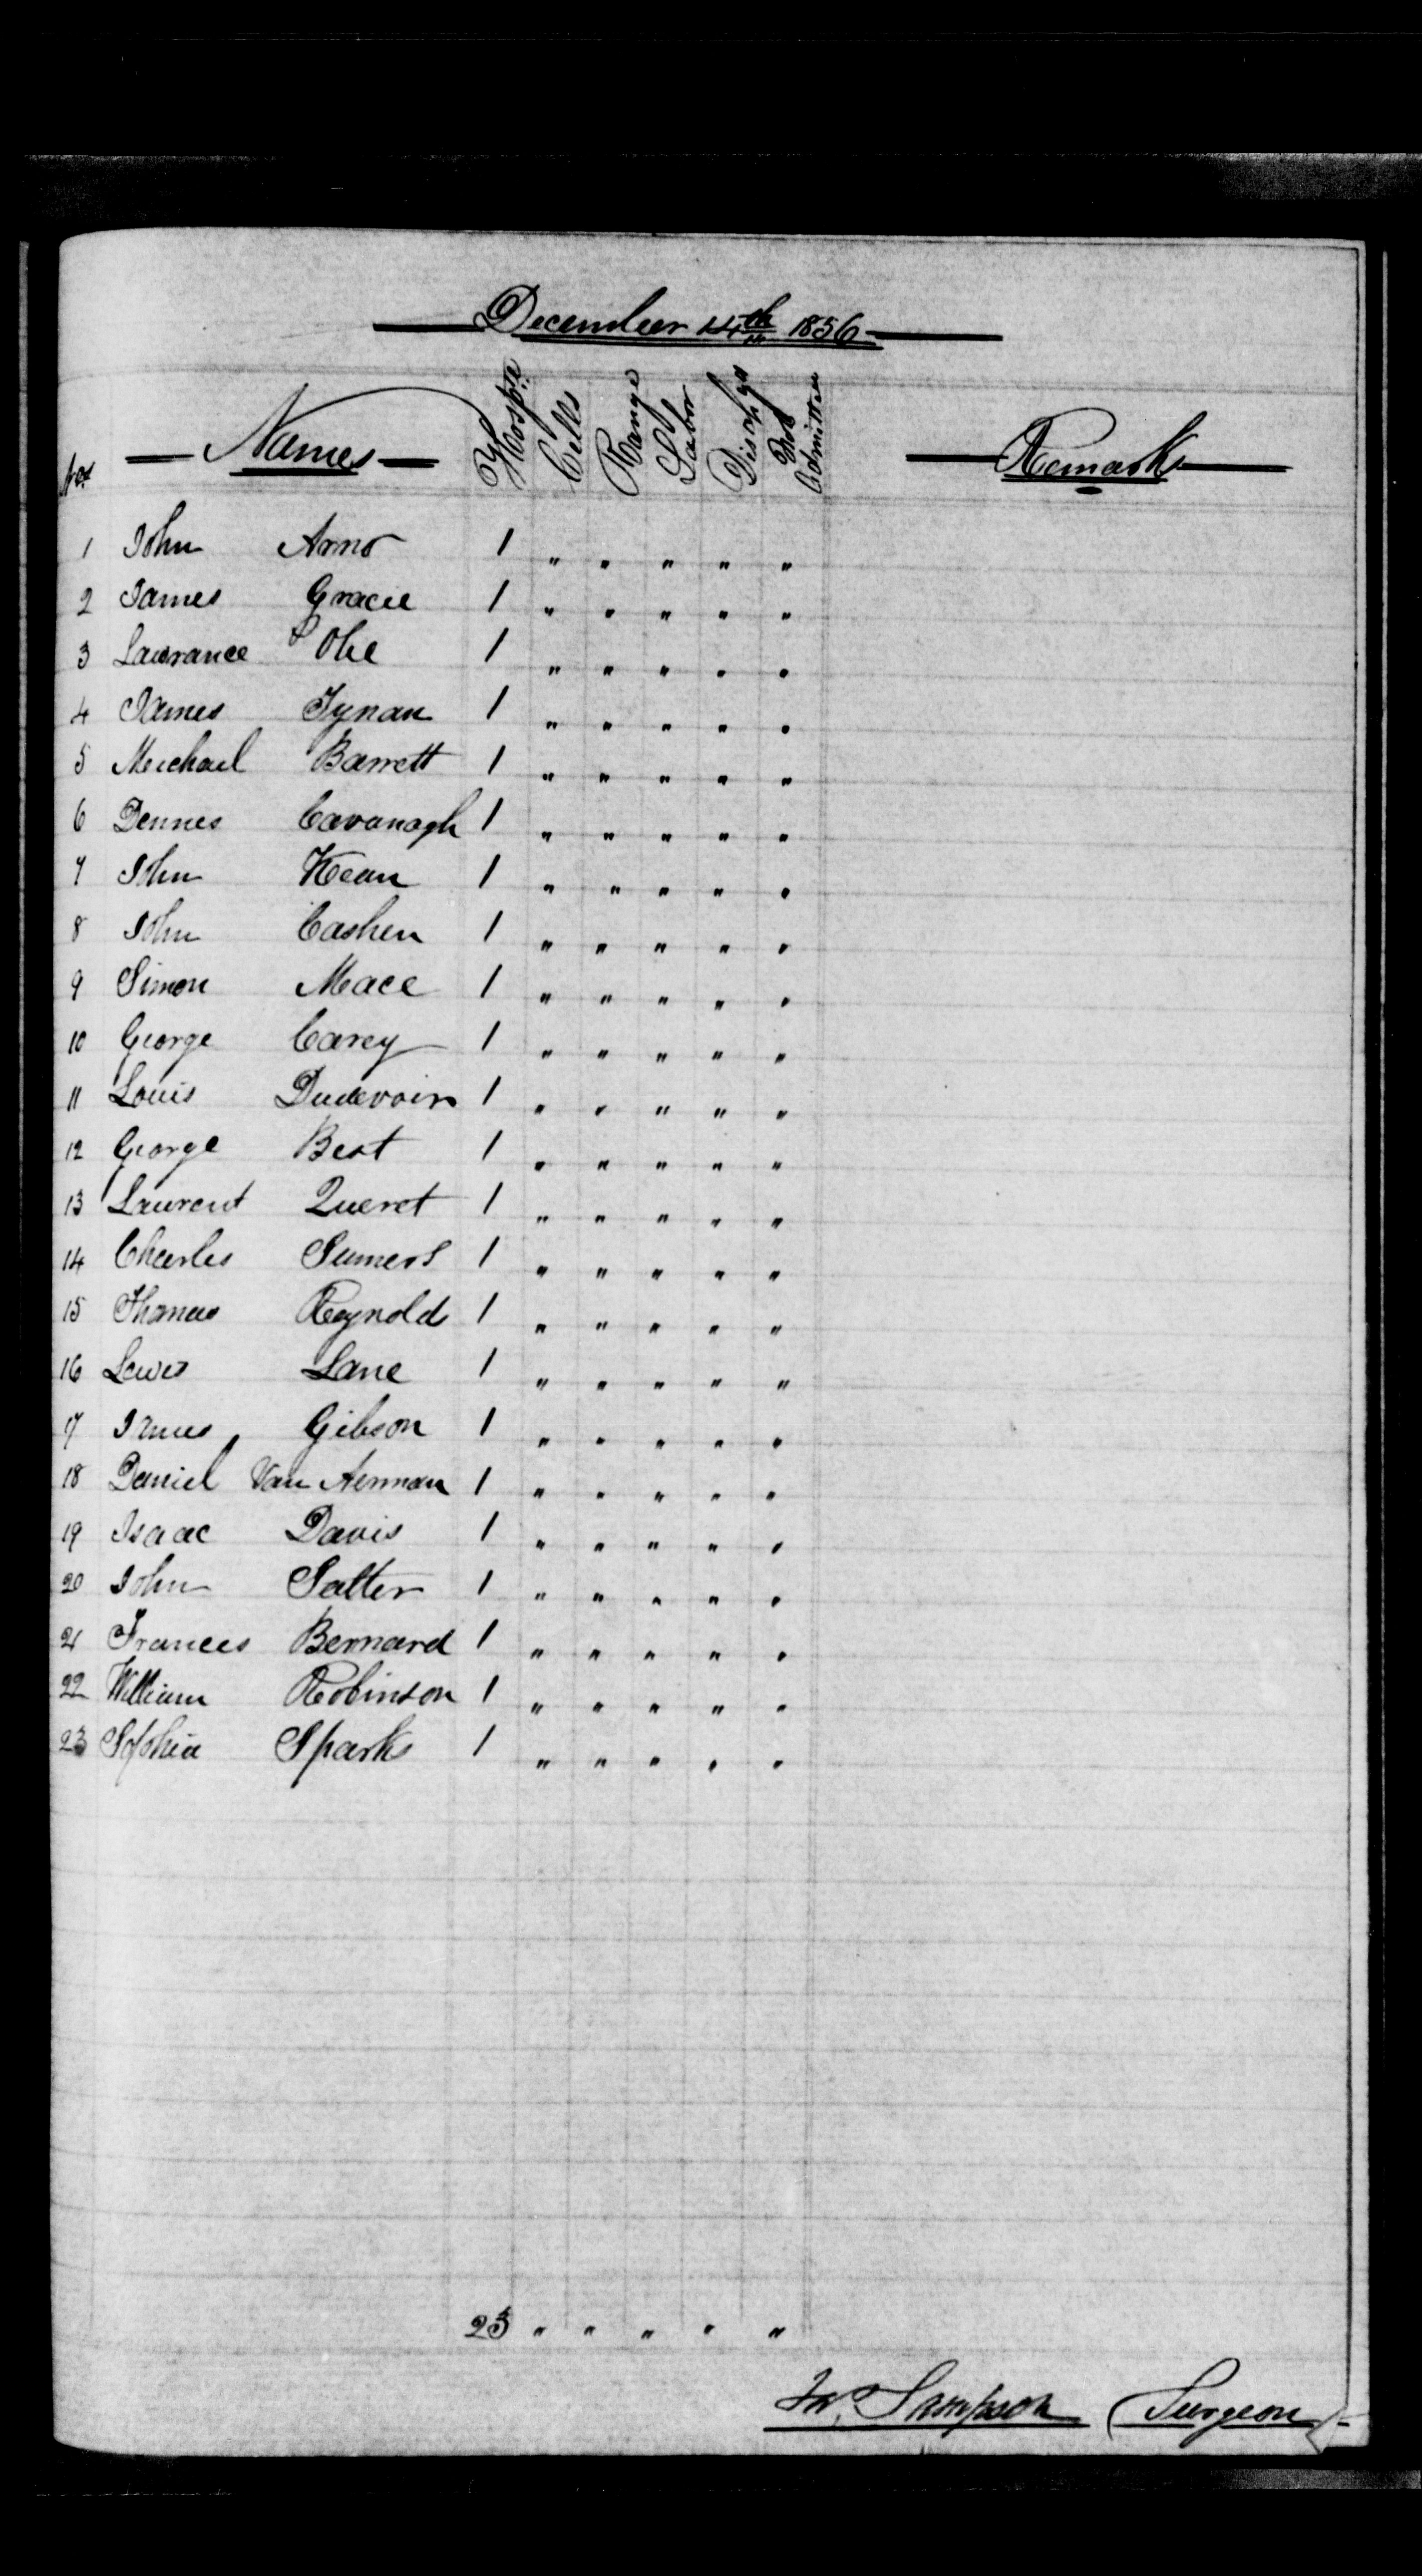 December 14th 1856
Nos Names Hospl Cells Range Labor Dischgd Not Admitted Remarks
1 John Arno 1 " " " " "
2 James Gracie 1 " " " " "
3 Lawrance Ohe 1 " " " " "
4 James Tynan 1 " " " " "
5 Meichael Barrett 1 " " " " "
6 Dennes Cavanagh 1 " " " " "
7 John Kean 1 " " " " "
8 John Cashen 1 " " " " "
9 Simon Mace 1 " " " " "
10 George Carey 1 " " " " "
11 Louis Dudevoir 1 " " " " "
12 George Best 1 " " " " "
13 Laurent Queret 1 " " " " "
14 Charles Sumers 1 " " " " "
15 Thomas Reynolds 1 " " " " "
16 Lewes Lane 1 " " " " "
17 James Gibson 1 " " " " "
18 Daniel Van Aernan 1 " " " " "
19 Isaac Davis 1 " " " " "
20 John Salter 1 " " " " "
21 Frances Bernard 1 " " " " "
22 William Robinson 1 " " " " "
23 Sophia Sparks 1 " " " " "
23 " " " " "
Sampson Surgeon